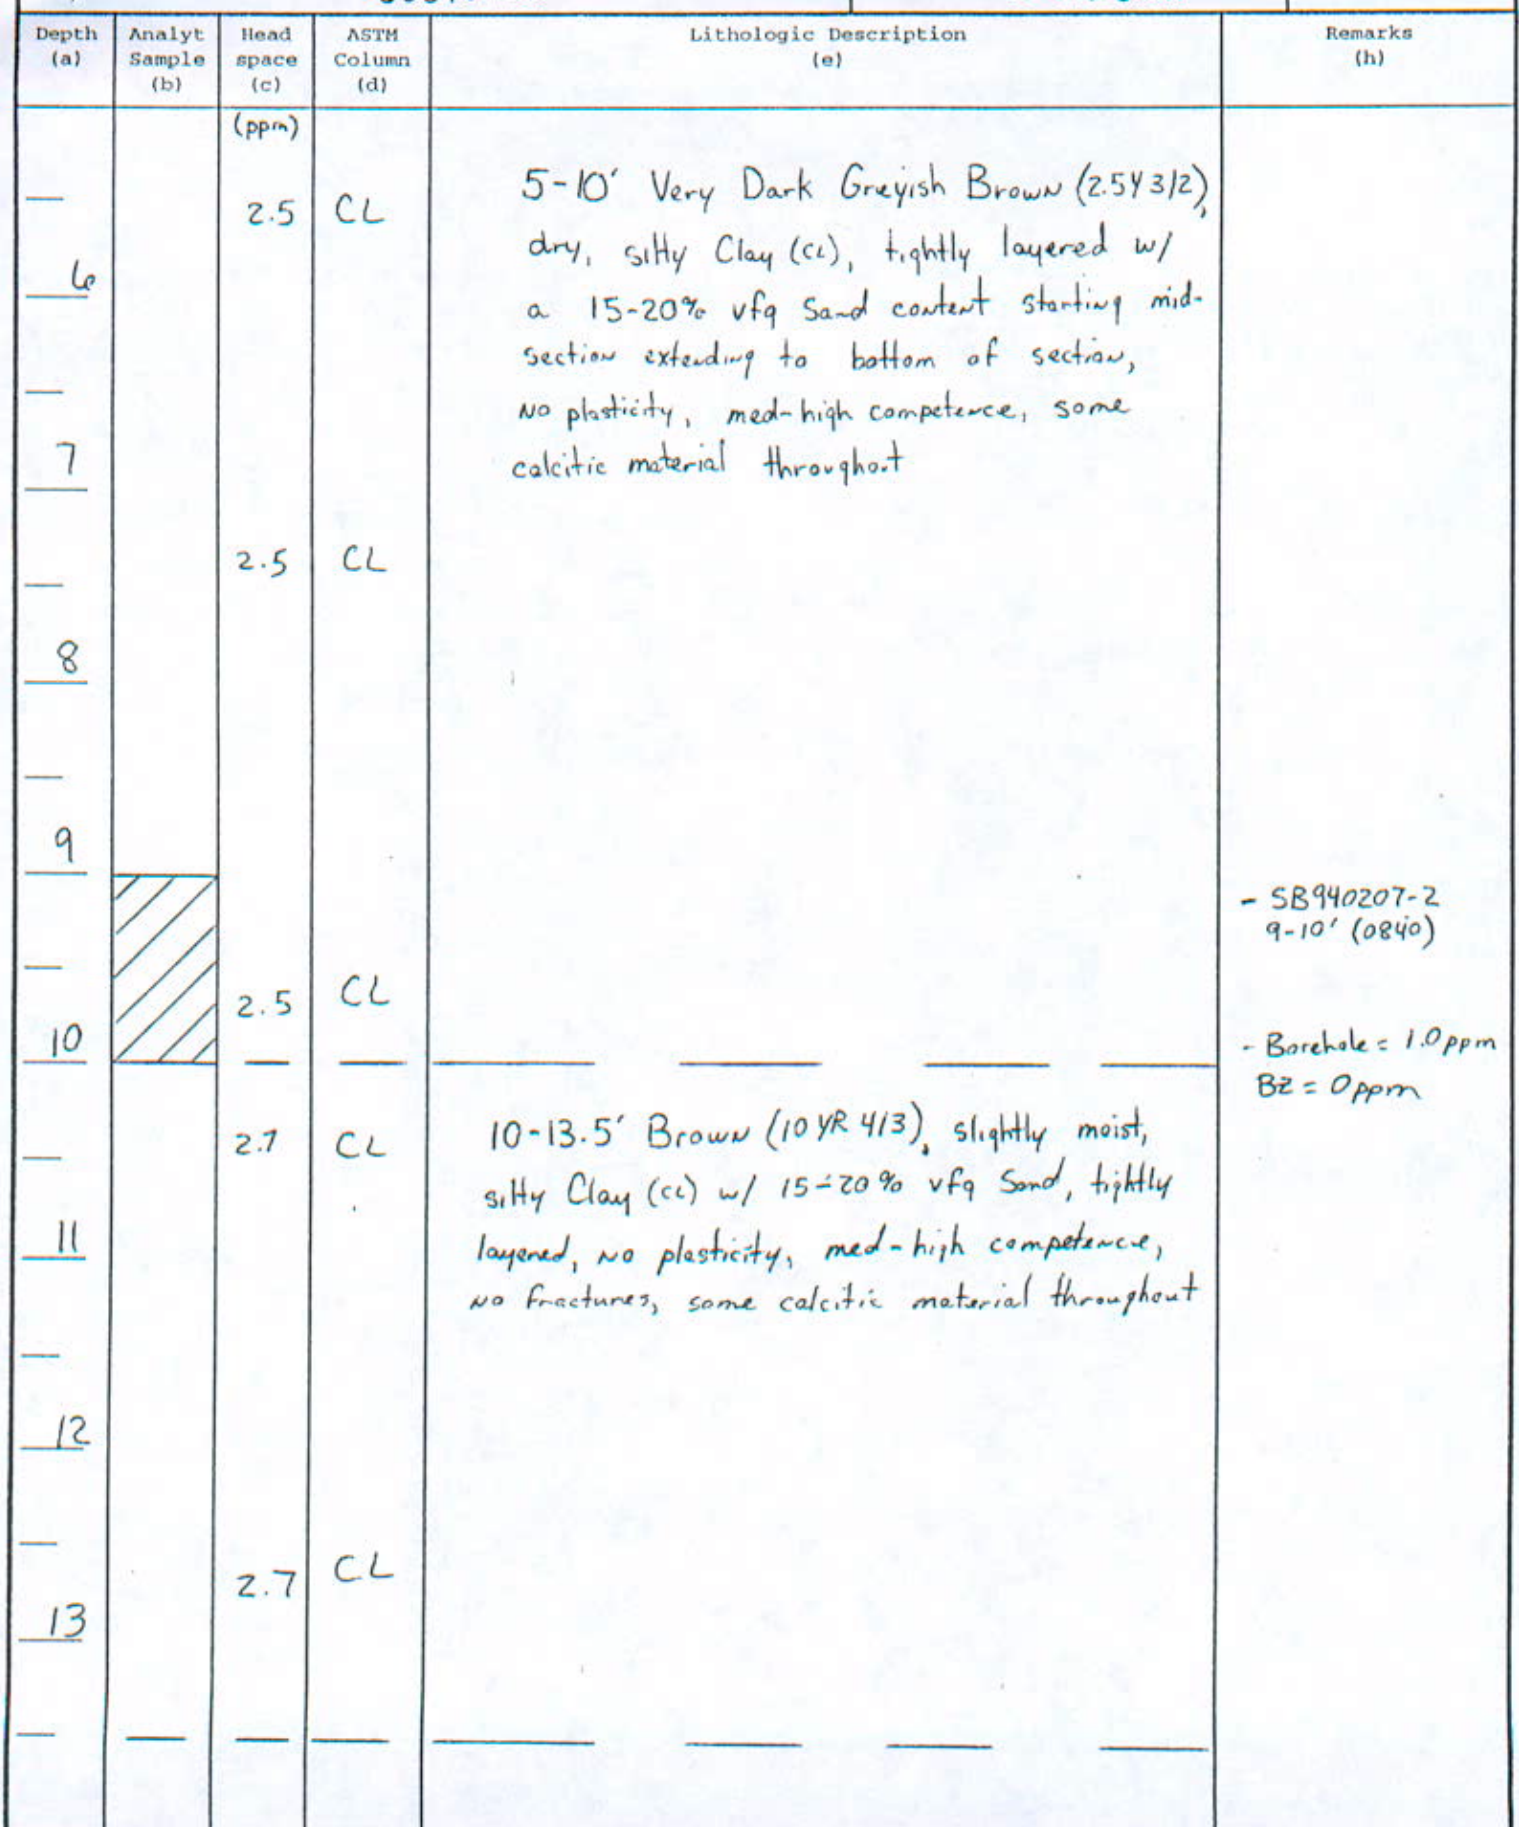 Depth Analyt Head ASTM Lithologic Description Remarks
(a) Sample space Column (e) (h)
(b) (c) (d)
(ppm)
5-10' Very Dark Greyish Brown (2.5Y 3/2),
2.5 CL
dry, silty Clay (CL), tightly layered w/
6
a 15-20% vfg Sand content starting mid-
section extending to bottom of section,
No plasticity, med-high competence, some
7
calcitic material throughout
2.5 CL
8
9
- SB940207-2
9-10' (0840)
2.5 CL
10
- Borehole = 1.0 ppm
BZ = 0 ppm
2.7 CL
10-13.5' Brown (10 YR 4/3), slightly moist,
silty Clay (CL) w/ 15-20% vfg Sand, tightly
11
layered, No plasticity, med-high competence,
No fractures, some calcitic material throughout
12
2.7 CL
13